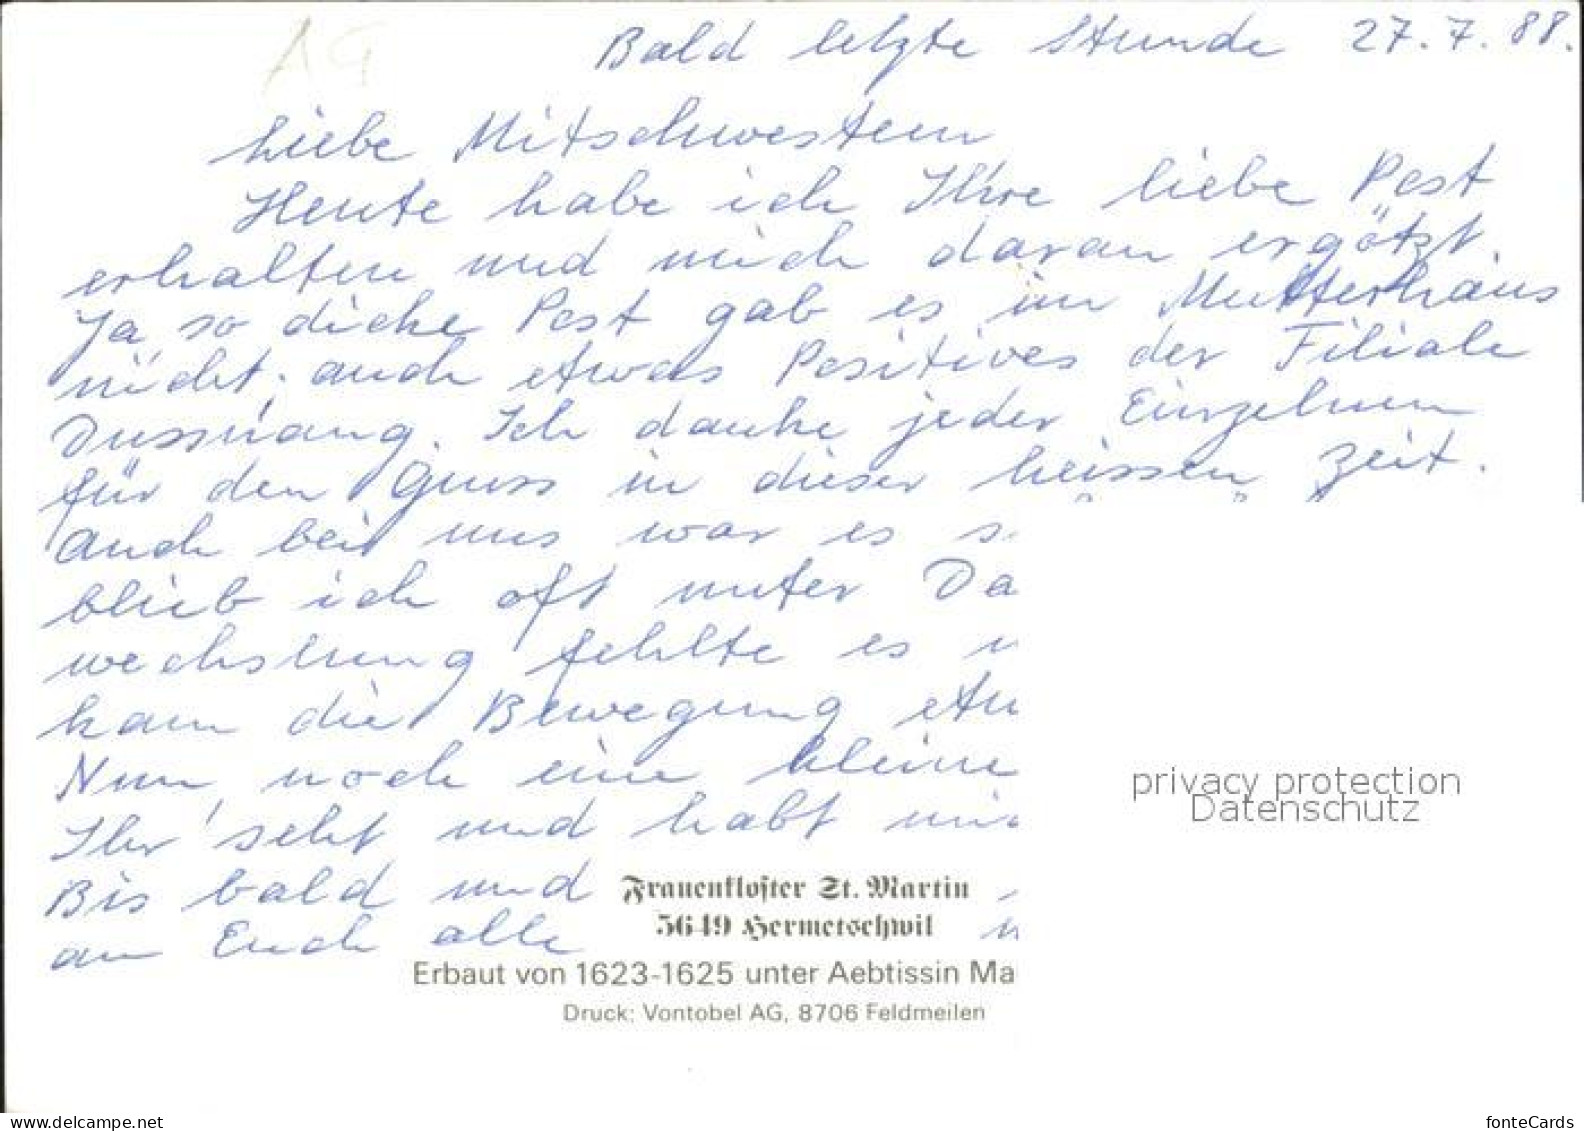 AG
Bald letzte Stunde 27.7.88.
Liebe Mitschwestern
Heute habe ich Ihre liebe Post
erhalten und mich daran ergötzt.
Ja so dicke Post gab es im Mutterhaus
nicht. auch etwas Positives der Filiale
Dussnang. Ich danke jeder Einzelnen
für den Gruss in dieser heissen Zeit.
Auch bei uns war es
blieb ich oft unter Da
wechslung fehlte es
kam die Bewegung
Nun, noch eine kleine
Ihr seht und habt
Bis bald und
an Euch alle
Frauenkloster St. Martin
5649 Hermetschwil
Erbaut von 1623-1625 unter Aebtissin Ma
Druck: Vontobel AG, 8706 Feldmeilen
privacy protection
Datenschutz
www.delcampe.net
fonteCards